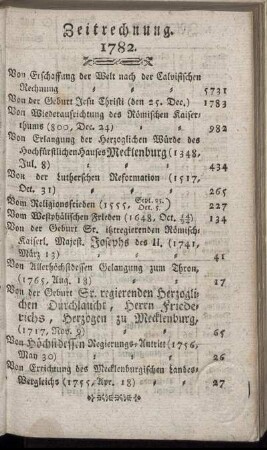 Zeitrechnung.
1782.
Von Erschaffung der Welt nach der Calvisischen
Rechnung 5731
Von der Geburt Jesu Christi (den 25. Dec.) 1783
Von Wiederaufrichtung des Römischen Kaiser
thums (800, Dec. 24) 982
Von Erlangung der Herzoglichen Würde des
Hochfürstlichen Hauses Mecklenburg (1348,
Jul. 8) 434
Von der Lutherschen Reformation (1517,
Oct. 31) 265
Vom Religionsfrieden (1555, Sept. 25. Oct. 5.) 227
Vom Westphälischen Frieden (1648, Oct. 14/24) 134
Von der Geburt Sr. itzregierenden Römisch-
Kaiserl. Majest. Josephs des II. (1741,
März 13) 41
Von Allerhöchstdessen Gelangung zum Thron,
(1765, Aug. 18) 17
Von der Geburt Sr. regierenden Herzogli
chen Durchlaucht, Herrn Friede-
richs, Herzogen zu Mecklenburg,
(1717, Nov. 9) 65
Von Höchstdessen Regierungs-Antritt (1756,
May 30) 26
Von Errichtung des Mecklenburgischen Landes-
Vergleichs (1755, Apr. 18) 27